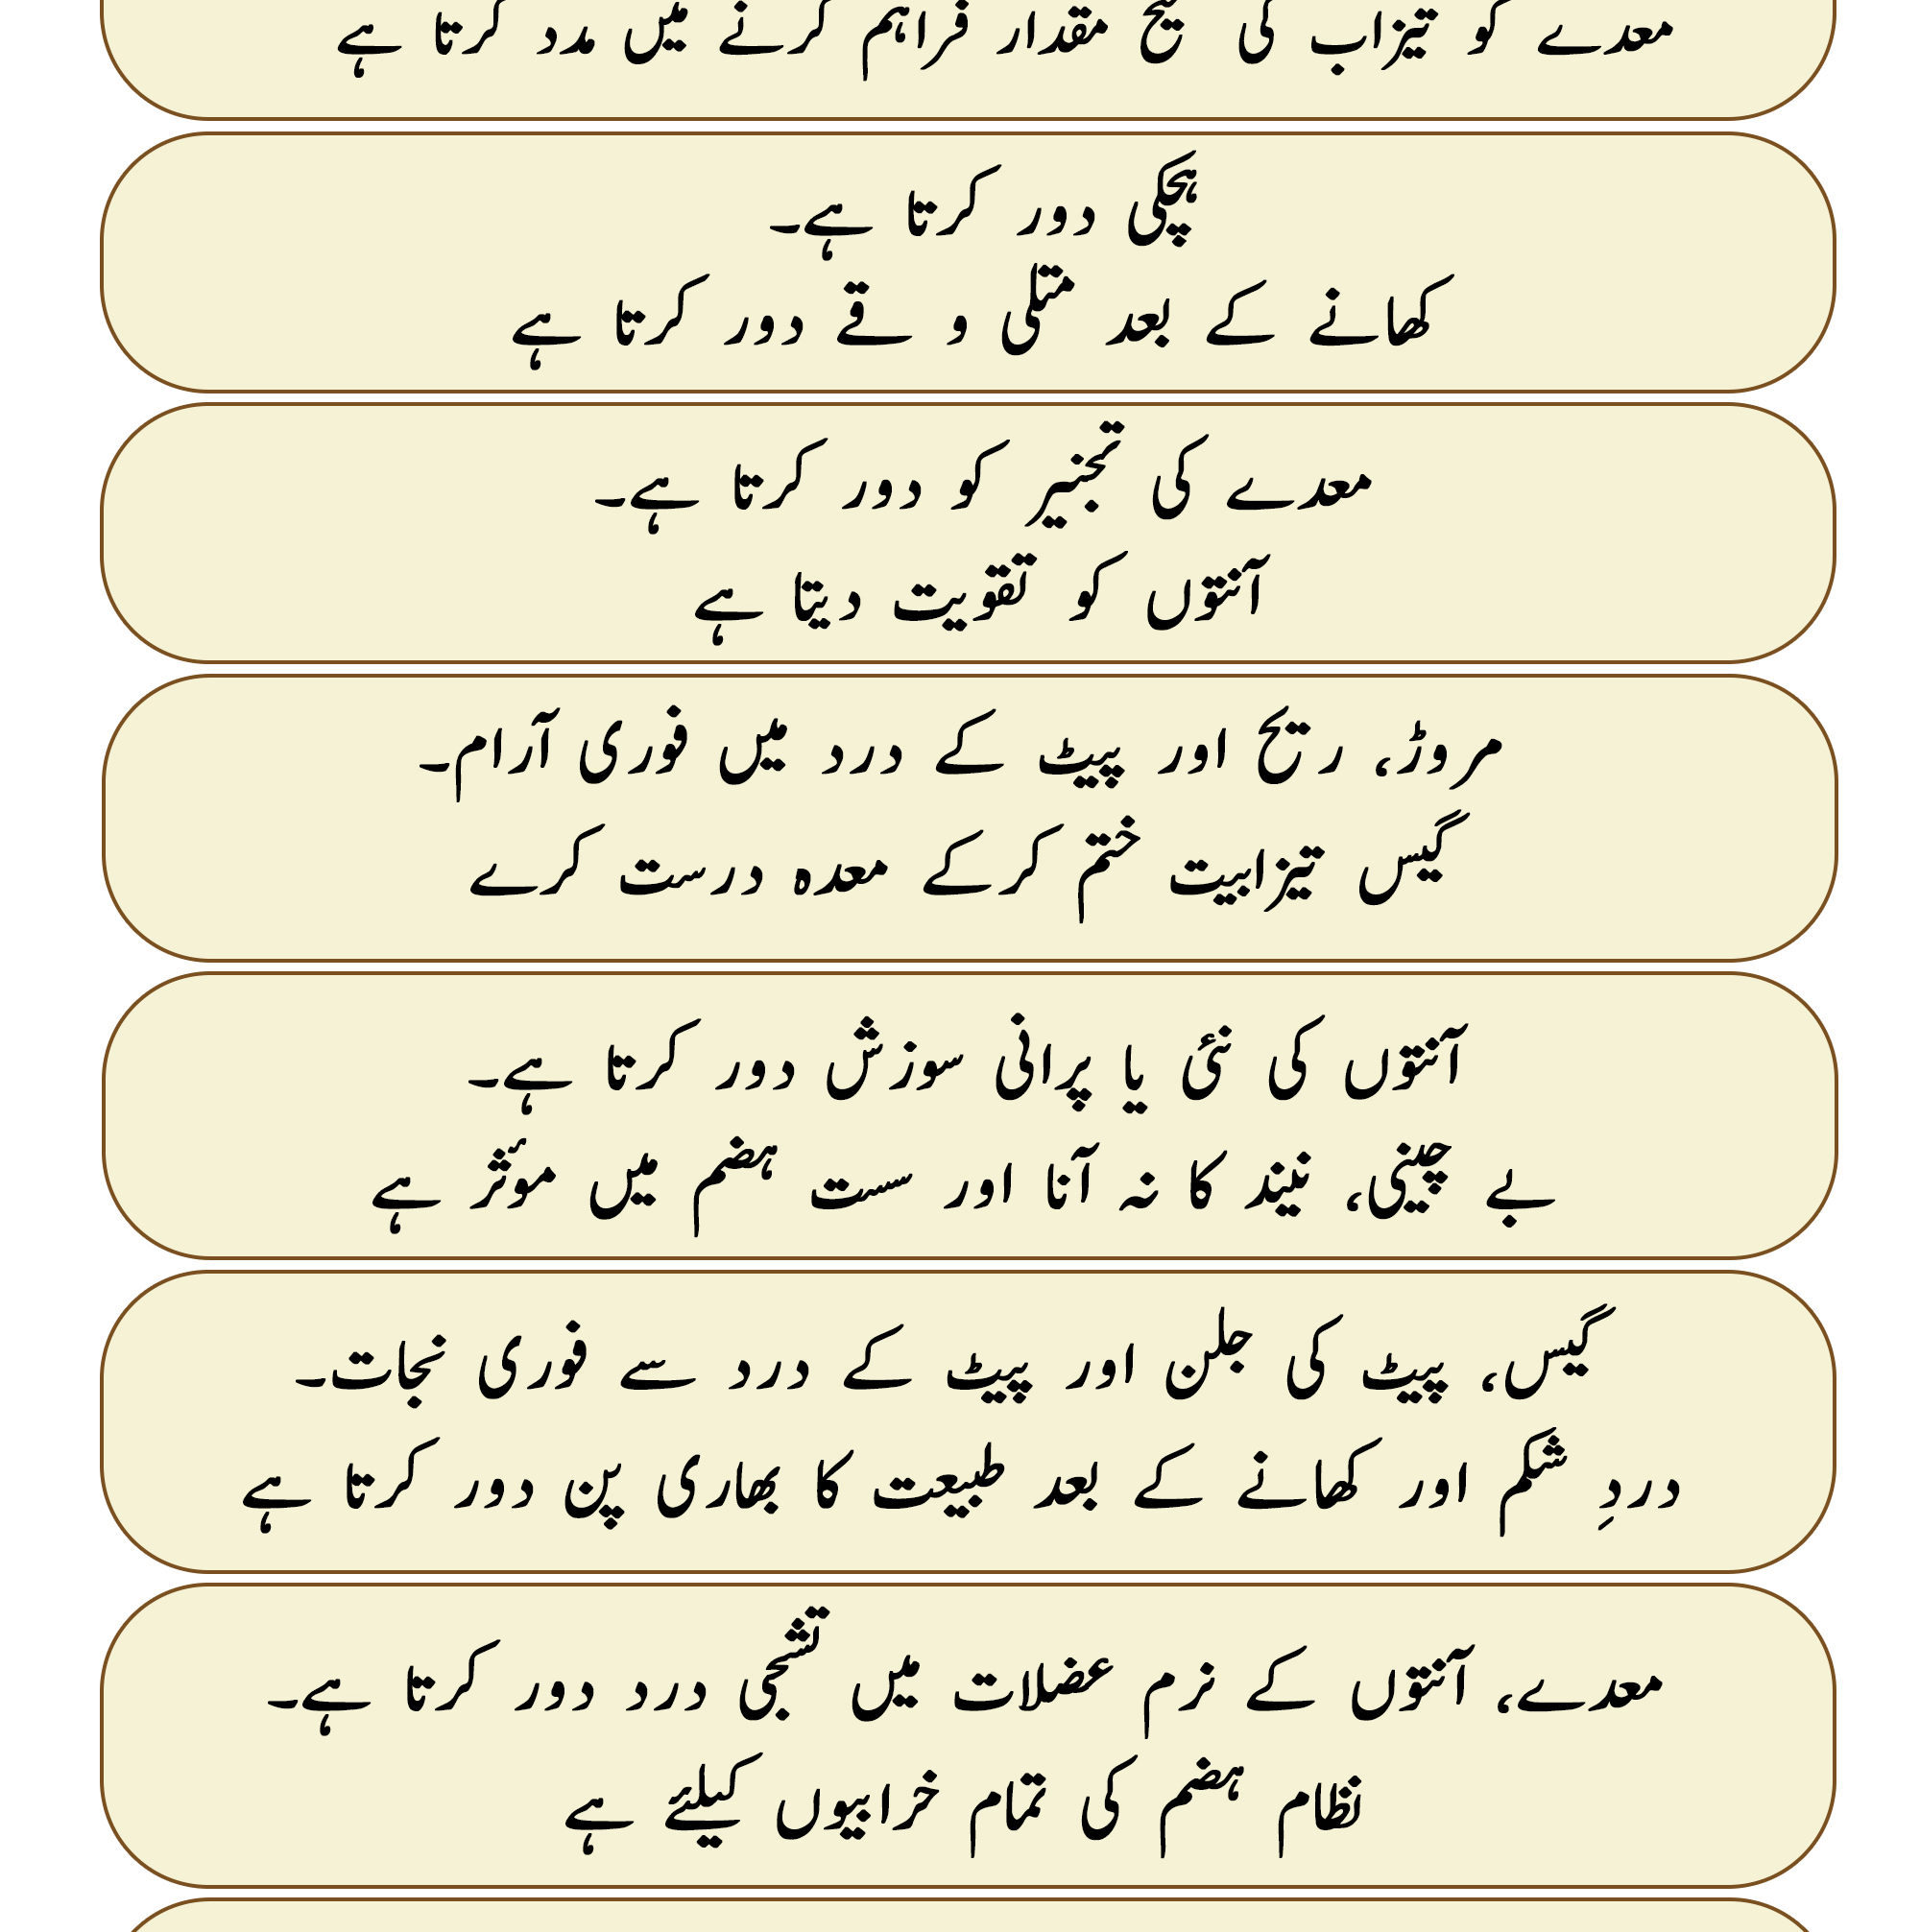 معدے کو تیزاب کی صحیح مقدار فراہم کرنے میں مدد کرتا ہے
ہچکی دور کرتا ہے۔
کھانے کے بعد متلی و قے دور کرتا ہے
معدے کی تبخیر کو دور کرتا ہے۔
آنتوں کو تقویت دیتا ہے
مروڑ، ریح اور پیٹ کے درد میں فوری آرام۔
گیس تیزابیت ختم کرکے معدہ درست کرے
آنتوں کی نئی یا پرانی سوزش دور کرتا ہے۔
بے چینی، نیند کا نہ آنا اور سست ہضم میں موٴثر ہے
گیس، پیٹ کی جلن اور پیٹ کے درد سے فوری نجات۔
دردِ شکم اور کھانے کے بعد طبیعت کا بھاری پن دور کرتا ہے
معدے، آنتوں کے نرم عضلات میں تشنجی درد دور کرتا ہے۔
نظام ہضم کی تمام خرابیوں کیلئے ہے